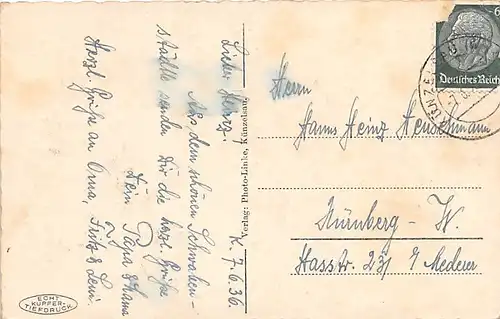 K. 7.6.36.
Lieber Heinz!
Aus dem schönen Schwaben-
städtle senden Dir die herzl. Grüße
Dein Papa & Mama
Herzl. Grüße an Oma, Fritz & Leni
Verlag: Photo-Linke, Künzelsau.
ECHT
KUPFER-
TIEFDRUCK
6
Deutsches Reich
KÜNZELSAU
Herrn
Hanns Heinz
Nürnberg - W.
Hasstr. 23/ Mederer